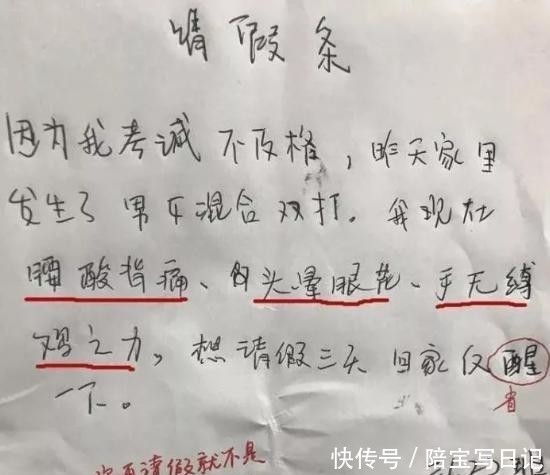 请假条
因为我考诚不及格，昨天家里
发生了男女混合双打。我现在
腰酸背痛、头晕眼花、手无缚
鸡之力，想请假三天回家反醒
省
一下。
再请假就不是
快传号/陪宝写日记